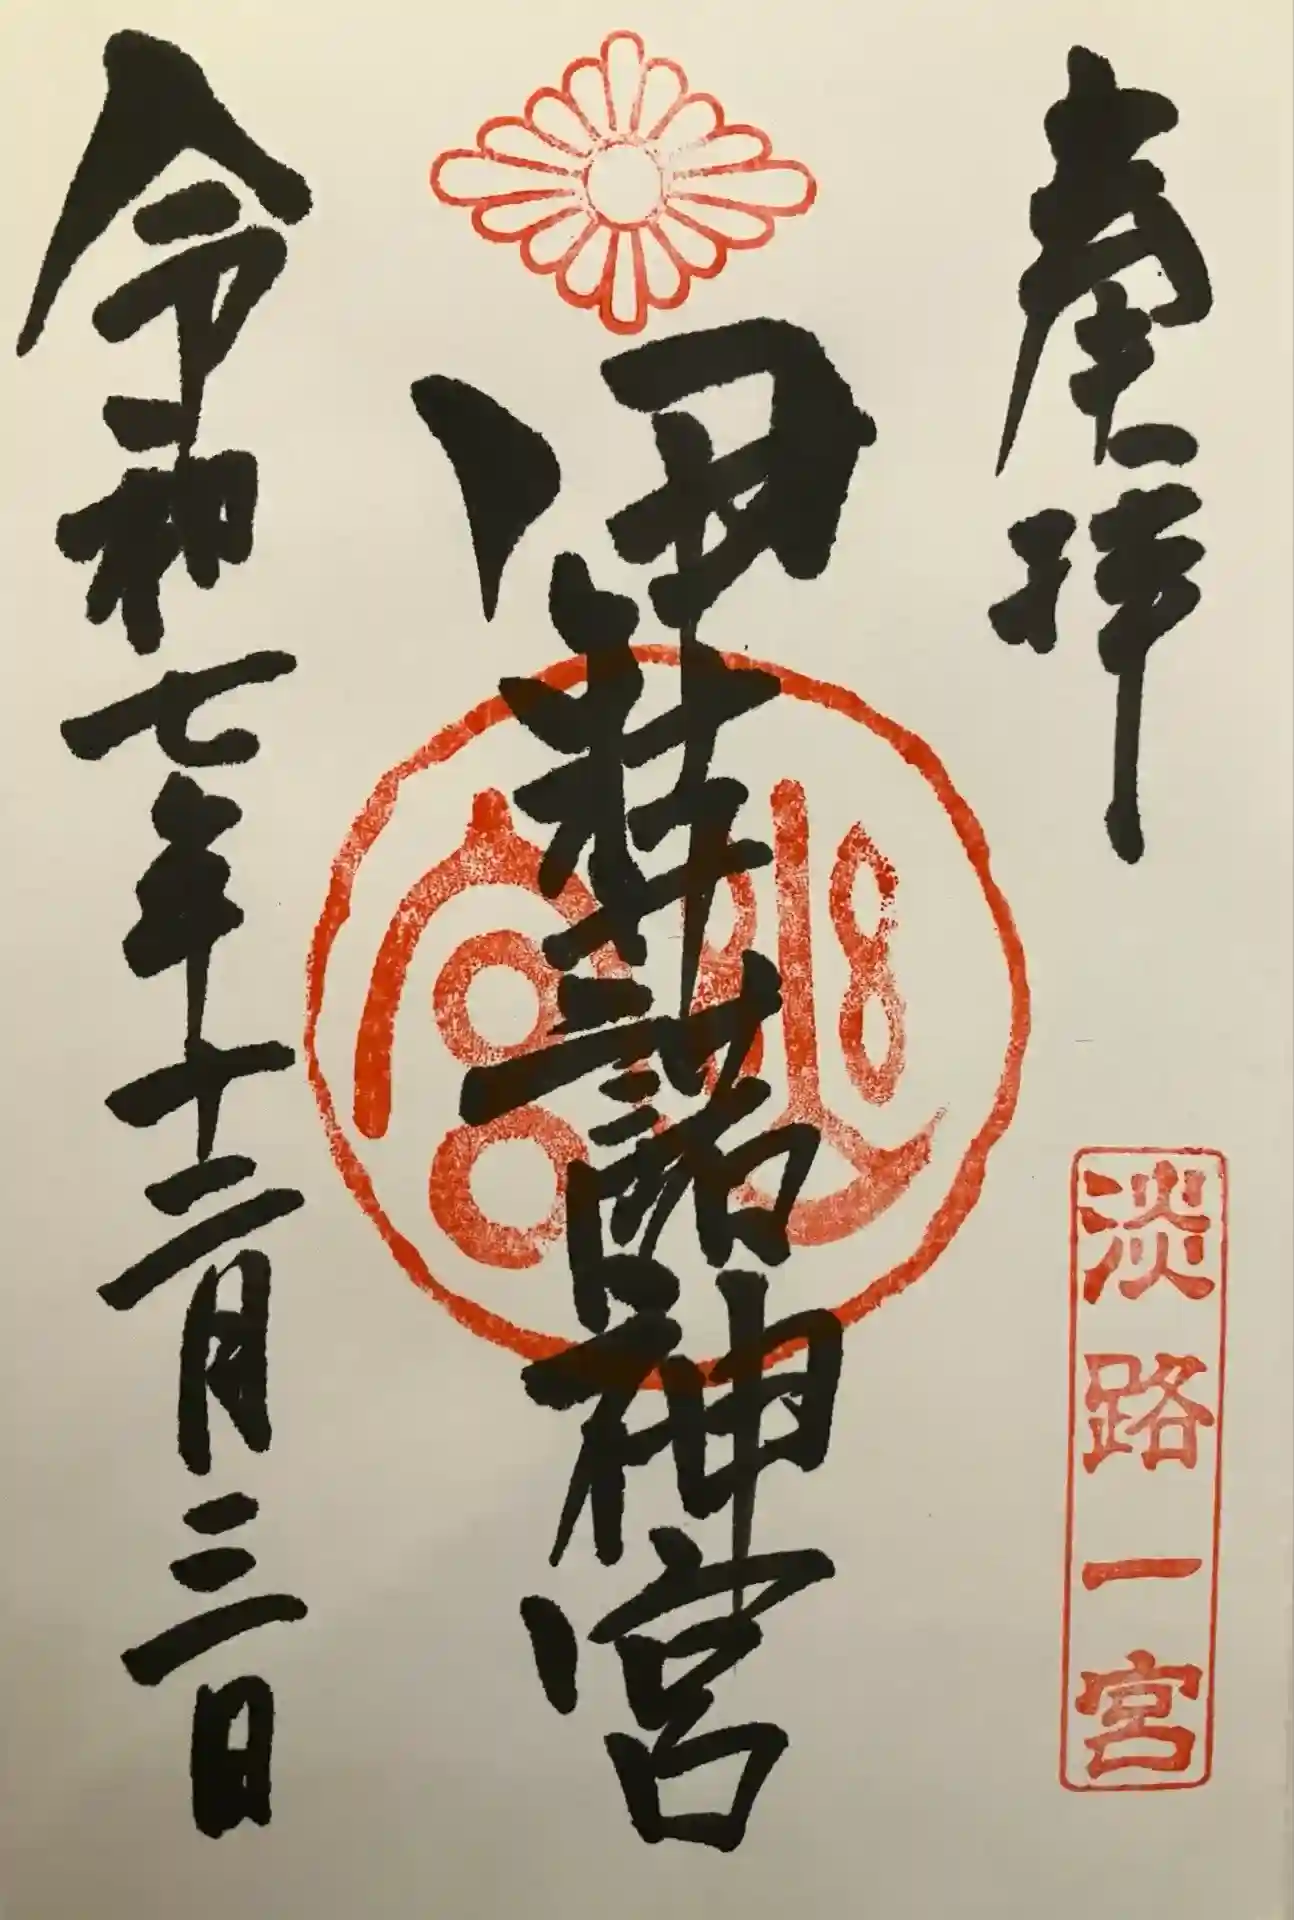 奉拝
淡路一宮
伊弉諾神宮
令和七年十二月三日